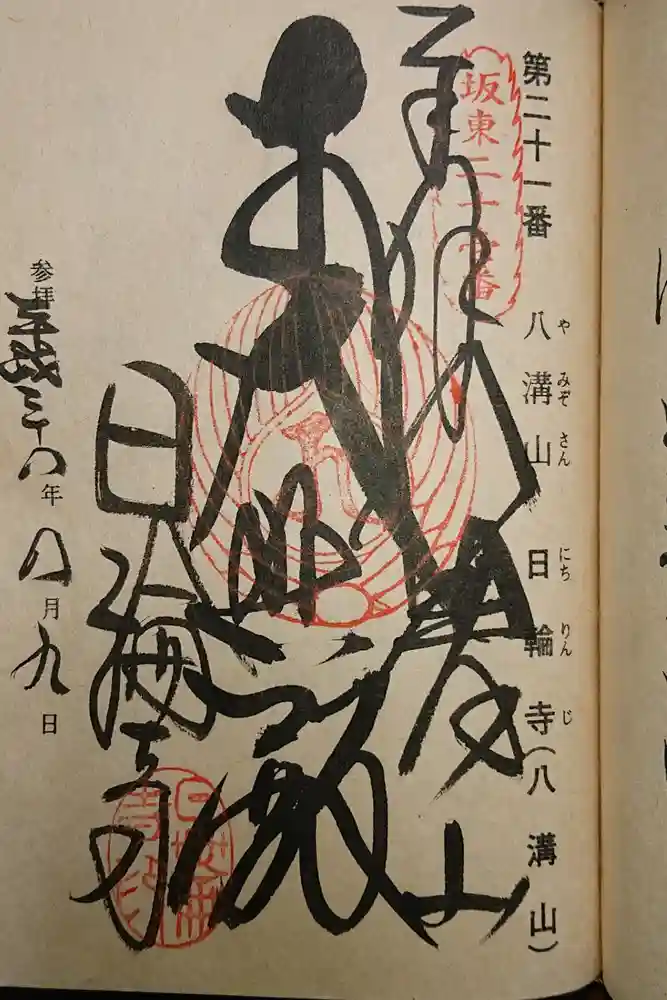 第二十一番 八溝山 日輪寺(八溝山)
や みぞ さん にち りん じ
坂東二十一番
奉拝 八溝山
大悲殿
日輪寺
参拝 平成三十八年八月九日